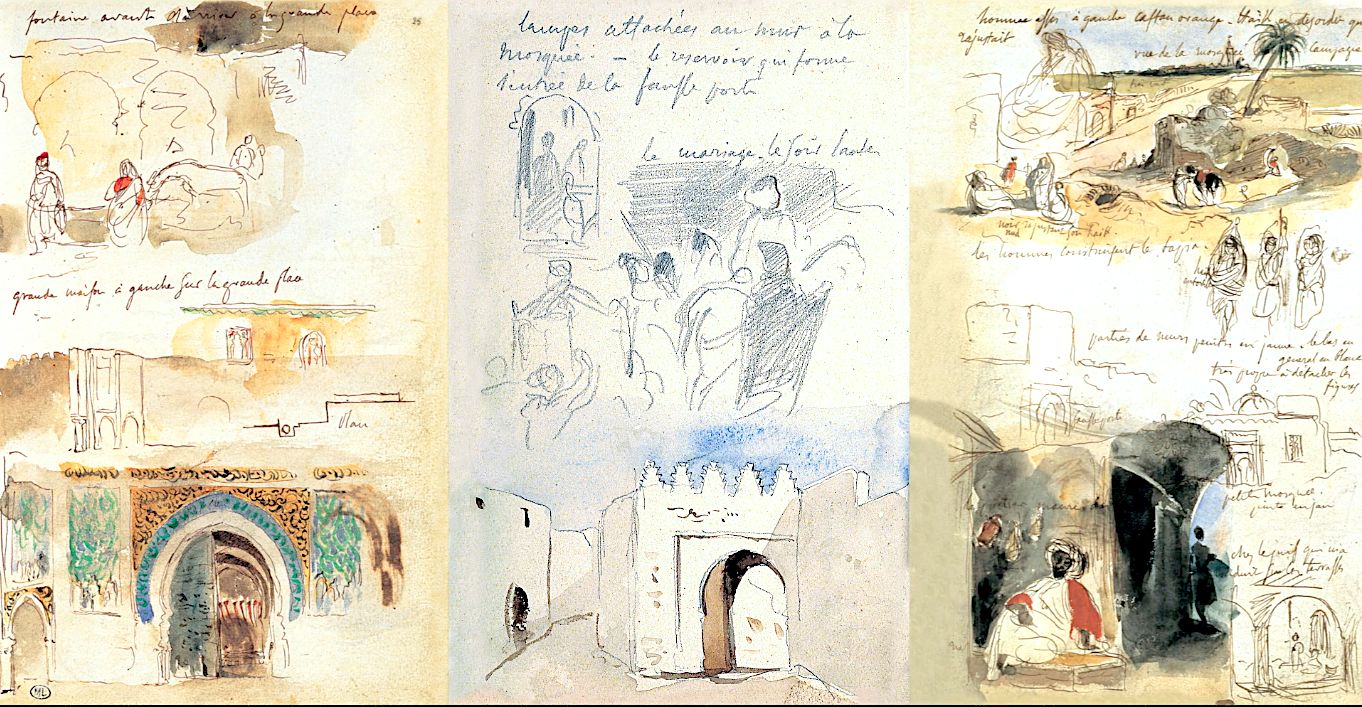 fontaine avant d'arriver à la grande place
25
grande maison à gauche sur la grande place
Plan
ML
attachées au mur à la
Mosquée. — le reservoir qui forme
l'entrée de la fausse porte
le mariage. le soir
hommes assis à gauche caftan orange. haïk en desordre qu
rajustait
vue de la mosquée campagne
noir rajustant son haïk
nud
les hommes construisent le tapia.
parties de murs peintes en jaune. le bas en
general en blanc
très propre à détacher les
figures
fausse porte
petite mosquée.
peinte en jaune
chez le juif qui m'a
conduit sur les terrasses